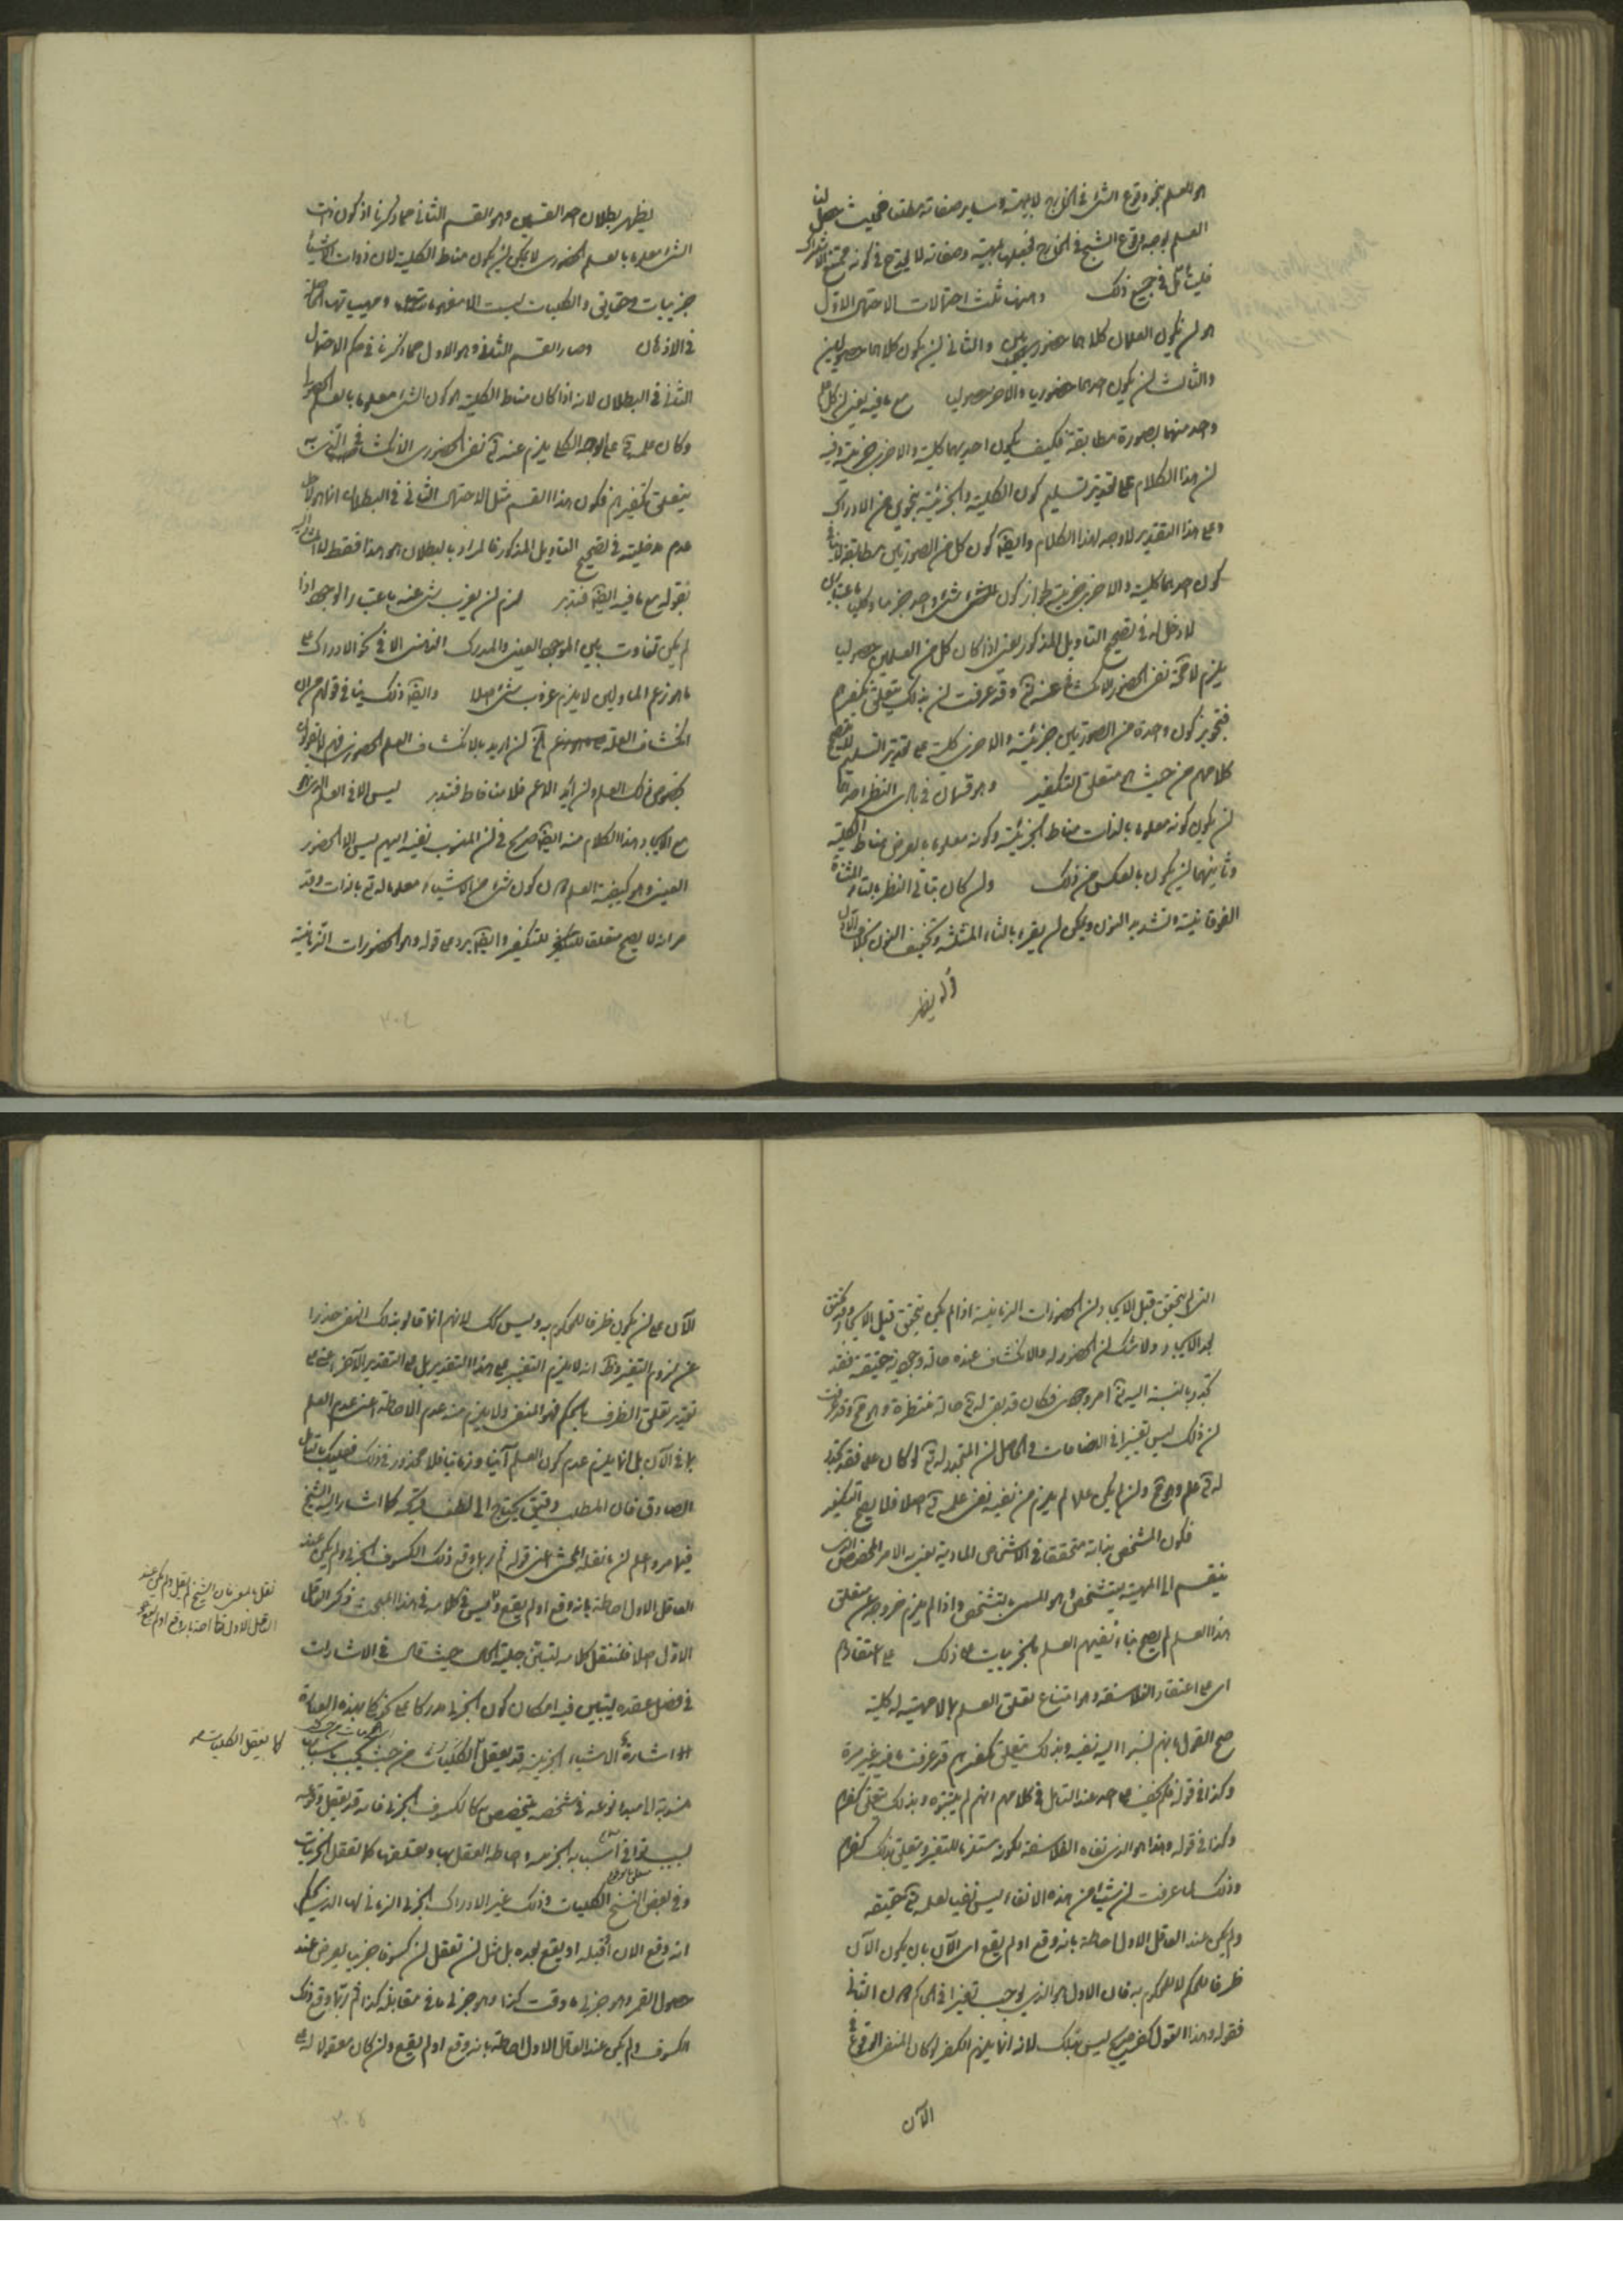 هو العلم بنحو وقوع الشئ في الخارج لا بمهيته وساير صفاته مطلقا فحيث حصل لنا
العلم بوجه وقوع الشبح في الخارج لمهيته وصفاته لا يحتاج في كونه ممتنع الاشتراك
فليتأمل في جميع ذلك وههنا ثلث احتمالات الاحتمال الاول
هو ان يكون العلمان كلاهما حضوريين والثاني ان يكون كلاهما حصوليين
والثالث ان يكون احدهما حضوريا والاخر حصوليا مع ما فيه يعني ان كل
واحد منهما بصورة مطابقة فكيف يكون احديهما كلية والاخرى جزئية وفيه
ان هذا الكلام على تقدير تسليم كون الكلية والجزئية بنحوي من الادراك
وعلى هذا التقدير لا وجه لهذا الكلام وايضا كون كل من الصورتين مطابقة لا ينافي
كون احدهما كلية والاخرى جزئية لجواز كون شئ واحد جزئيا وكليا باعتبارين
لا دخل له في تصحيح التأويل المذكور يعني اذا كان كل من العلمين حصوليا
يلزم لا محة نفي الحضور والانكشاف عنه تع وقد عرفت ان بذلك يتعلق تكفيرهم
فتجويز كون واحدة من الصورتين جزئية والاخرى كلية على تقدير التسليم لا يصحح
كلامهم من حيث هو متعلق التكفير وهو قسمان في بادى النظر احدهما
ان يكون كونه معلوما بالذات مناط الجزئية وكونه معلوما بالعرض مناط الكلية
وثانيهما ان يكون بالعكس من ذلك وان كان يتأتى النظر بالتاء المثناة
الفوقانية وتشديد النون ويمكن ان يقرء بالثاء المثلثة وتخفيف النون بخلاف الاول
يظهر بطلان احد القسمين وهو القسم الثاني مما ذكرنا اذ كون ذات
الشئ معلوما بالعلم الحضوري لا يمكن ان يكون مناط الكلية لان ذوات الاشياء
جزئيات وحقايق والكليات ليست الا مفهومات ومهيياتها الحاصلة
في الاذهان وصار القسم الثاني وهو الاول مما ذكرنا في حكم الاحتمال
الثاني في البطلان لانه اذا كان مناط الكلية هو كون الشئ معلوما بالعلم الحصولي
وكان علمه تع على الوجه الكلي يلزم عنه تع نفي الحضوري الانكشافي الذي به
يتعلق تكفيرهم فكون هذا القسم مثل الاحتمال الثاني في البطلان انما هو لاجل
عدم مدخليته في تصحيح التأويل المذكور فالمراد بالبطلان هو هذا فقط
بقوله مع ما فيه ايضا فتدبر لزم ان يعزب شئ عنه باعتبار الوجه اذا
لم يكن تفاوت بين الموجود العيني والمدرك الذهني الا في نحو الادراك على
ما هو زعم الماولين لا يلزم عزوب شئ اصلا وايضا ذلك ينافي قولهم من ان
انكشاف العلة الخ ان اريد بالانكشاف العلم الحضوري فهم لا يقولون
بخصوص ذلك العلم وان اريد الاعم فلا منافاة فتدبر ليس الا في العلم الذي هو
مع الايجاد وهذا الكلام منه ايضا صريح في ان المنسوب نفيه اليهم ليس الا الحضور
العيني وهو كيفية العلم لان كون شئ من الاشياء معلوما له تع بالذات وقد
مر انه لا يصح متعلقا للتكفير وايضا يرد على قوله وهو الحضورات الزمانية
٣٠٤
التي لم يتحقق قبل الايجاد ان الحضورات الزمانية اذا لم يكن يتحقق قبل الايجاد وقد تحقق
بعد الايجاد ولا شك ان الحضور له والانكشاف عنده حالة وجودية حقيقة فقد
تجدد بالنسبة اليه تع امر وجودي فكان قد بقى له تع حالة منتظرة وهو مح وقد عرفت
ان ذلك ليس تغيرا في الصفات والحاصل ان المتجدد له تع لو كان علما فقد تجدد
له تع علم وهو مح وان لم يكن علما لم يلزم من نفيه نفى علمه تع اصلا فلا يصح التكفير
فكون المشخص بذاته متحققا في الاشخاص المادية يعني به الامر المخصص الذي
ينضم الى المهية يتشخص وهو المسمى بالتشخص واذا لم يلزم خروجه عن متعلق
هذا العلم لم يصح بناء نفيهم العلم بالجزئيات على ذلك على اعتقادهم
اى على اعتقاد الفلاسفة وهو امتناع تعلق العلم بما لا مهية له كلية
صح القول بانهم نسبوا اليه نفيه وبذلك يتعلق تكفيرهم قد عرفت ما فيه غير مرة
وكذا في قوله فلم يخف على احد عند التأمل في كلامهم انهم لم يثبتوه وبذلك يتعلق تكفيرهم
وكذا في قوله وهذا هو الذي نفاه الفلاسفة لكونه مستلزما للتغير ويتعلق بذلك تكفيرهم
وذلك لما عرفت ان شيئا من هذه الانحاء ليس نفيا لعلمه تع حقيقة
ولم يكن عند العاقل الاول احاطة بانه وقع او لم يقع اى الآن بان يكون الآن
ظرفا للحكم لا للمحكوم به فان الاول هو الذي يوجب تغيرا في الحاكم دون الثاني
فقوله وهذا القول كفر صريح ليس كذلك لانه انما يلزم الكفر لو كان المنفى الوقوع
الآن
الآن على ان يكون ظرفا للمحكوم به وليس كذلك لانهم انما قالوا بذلك النفى حذرا
عن لزوم التغير وظ انه لا يلزم التغيير على هذا التقدير بل على التقدير الآخر اعنى على
تقدير تعلق الظرف بالحكم فهو المنفى ولا يلزم منه عدم الاحاطة اعنى عدم العلم
بما في الآن بل انما يلزم عدم كون العلم آنيا وزمانيا فلا محذور في ذلك فعليك بالتأمل
الصادق فان المطلب دقيق يحتاج الى لطف قريحة كما اشار اليه الشيخ
فيما مر واعلم ان ما نقله المحشى اعنى قوله ثم ربما وقع ذلك الكسوف الجزئى ولم يكن عند
العاقل الاول احاطة بانه وقع او لم يقع وليس في كلامه في هذا المبحث ذكر العاقل
الاول اصلا فلننقل كلامه ليتبين جلية الحال حيث قال في الاشارات
في فصل عقده ليتبين فيه امكان كون الجزئى مدركا على نحو كلى بهذه العبارة
اشارة الاشياء الجزئية قد يعقل كما يعقل الكليات من حيث تجب باسبابها
منسوبة الى مبدأ نوعه في شخصه يتخصص به كالكسوف الجزئى فانه قد يعقل وقوعه
بسبب توافى اسبابه الجزئية واحاطة العقل بها وتعقلها كما تعقل الجزئيات
وفي بعض النسخ الكليات وذلك غير الادراك الجزئى الزمانى لها الذي يحكم
انه وقع الآن او قبله او يقع بعده بل مثل ان تعقل ان كسوفا جزئيا يعرض عند
حصول القمر وهو جزئى ما وقت كذا وهو جزئى ما في مقابلة كذا ثم ربما وقع ذلك
الكسوف ولم يكن عند العاقل الاول احاطة بانه وقع او لم يقع وان كان معقولا له على
كما يعقل الكليات